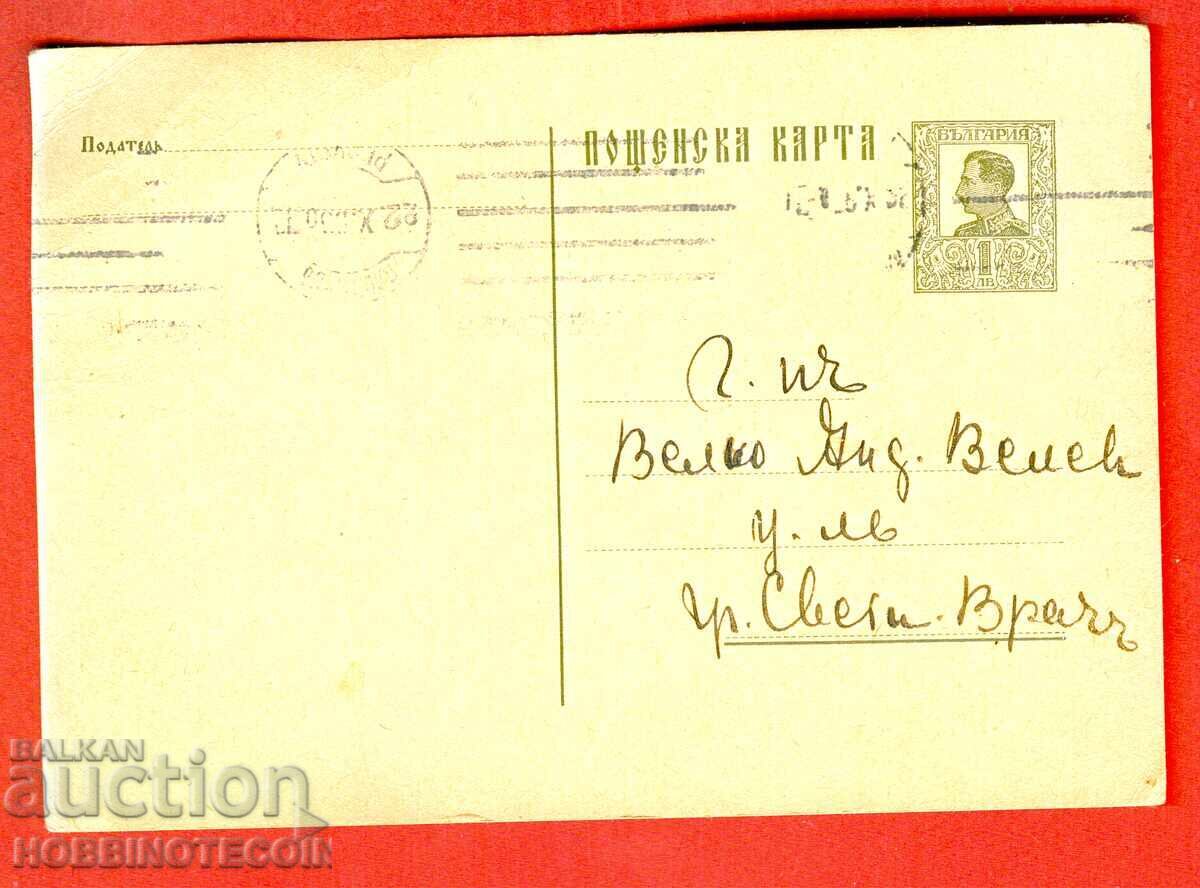 Податель
ПОЩЕНСКА КАРТА
БЪЛГАРИЯ
1
ЛВ
Г. нъ
Велко Анд. Велев
гр. Свети. Врачъ
BALKAN
auction
HOBBINOTECOIN